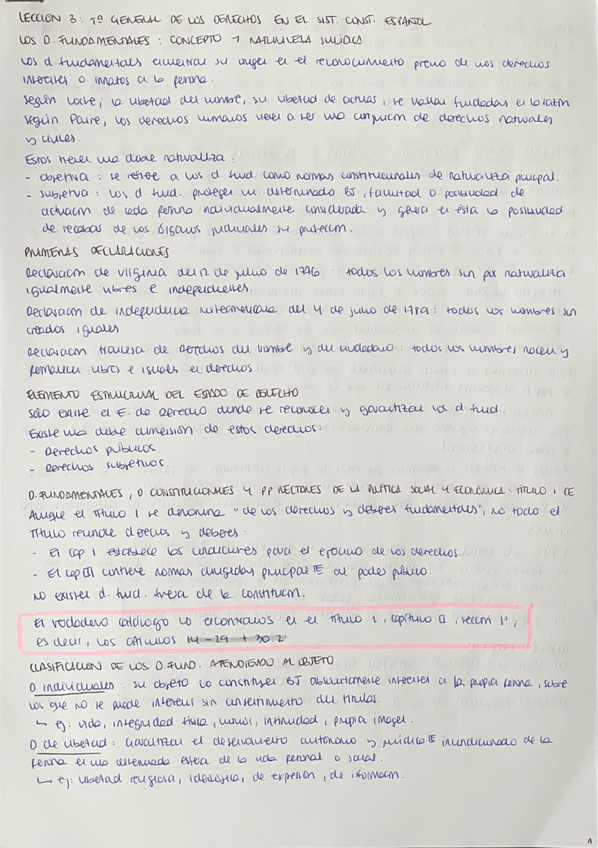 LECCION 3: Tª GENERAL DE LOS DERECHOS EN EL SIST. CONST. ESPAÑOL
LOS D. FUNDAMENTALES: CONCEPTO Y NATURALEZA JURÍDICA
Los d. fundamentales encuentran su origen en el reconocimiento previo de unos derechos
inherentes o innatos a la persona.
Según Locke, la libertad del hombre, su libertad de actuar, se hallan fundadas en la razón
Según Paine, los derechos humanos vienen a ser una conjunción de derechos naturales
y civiles.
Estos tienen una doble naturaleza:
- objetiva: se refiere a los d. fund. como normas constitucionales de naturaleza principal.
- subjetiva: los d. fund. protegen un determinado BJ, facultad o posibilidad de
actuación de cada persona individualmente considerada y genera en ésta la posibilidad
de recabar de los órganos judiciales su protección.
PRIMERAS DECLARACIONES
Declaración de Virginia del 12 de junio de 1776: todos los hombres son por naturaleza
igualmente libres e independientes.
Declaración de independencia norteamericana del 4 de julio de 1789: todos los hombres son
creados iguales.
Declaración francesa de Derechos del hombre y del ciudadano: todos los hombres nacen y
permanecen libres e iguales en derechos.
ELEMENTO ESTRUCTURAL DEL ESTADO DE DERECHO
Sólo existe el E. de Derecho donde se reconocen y garantizan los d. fund.
Existe una doble dimensión de estos derechos:
- Derechos públicos.
- Derechos subjetivos.
D. FUNDAMENTALES, D. CONSTITUCIONALES Y PP RECTORES DE LA POLÍTICA SOCIAL Y ECONÓMICA: TÍTULO I CE
Aunque el Título I se denomina "de los derechos y deberes fundamentales", no todo el
Título reconoce derechos y deberes:
- El cap I establece las condiciones para el ejercicio de los derechos.
- El cap III contiene normas dirigidas principal TE al poder público.
No existen d. fund. fuera de la constitución.
El verdadero catálogo lo encontramos en el Título I, capítulo II, sección 1ª,
es decir, los artículos 14-29 + 30.2
CLASIFICACION DE LOS D. FUND. ATENDIENDO AL OBJETO
D. individuales: su objeto lo constituyen BJ absolutamente inherentes a la propia persona, sobre
los que no se puede interferir sin consentimiento del titular.
↳ ej: vida, integridad física, honor, intimidad, propia imagen.
D. de libertad: Garantizan el desenvolvimiento autónomo y jurídica TE incondicionado de la
persona en una determinada esfera de la vida personal o social.
↳ ej: libertad religiosa, ideológica, de expresión, de información.
1